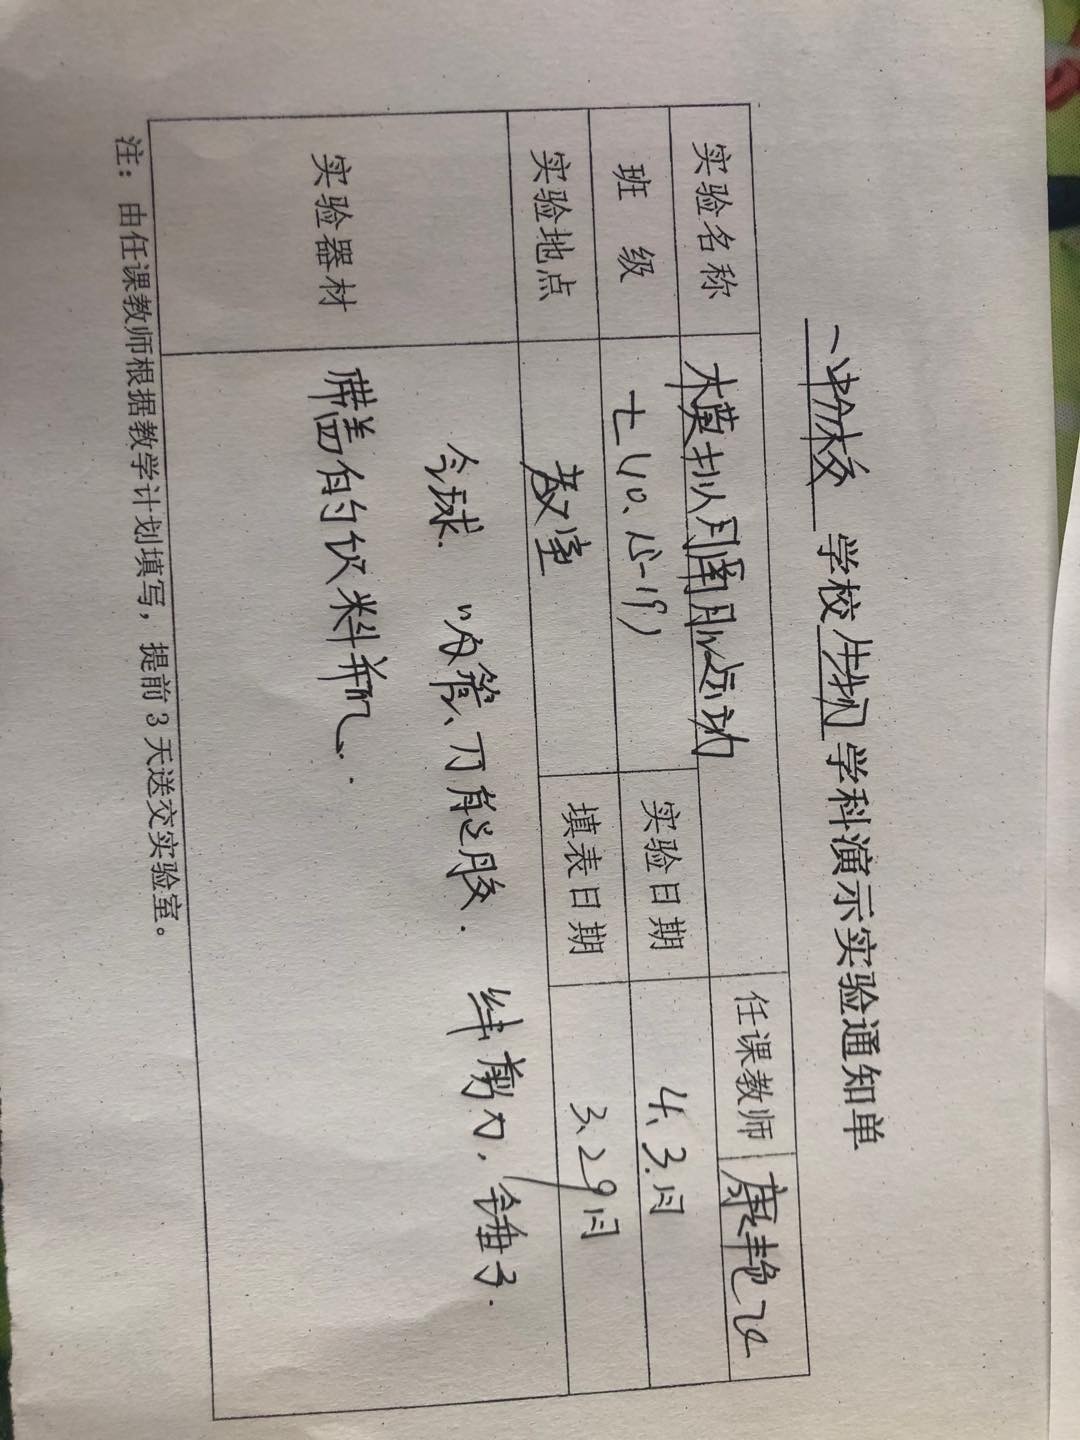 一中分校 学校 生物 学科演示实验通知单
实验名称 模拟膈肌运动 任课教师 康艳
班 级 七(10、15-19) 实验日期 4.3.日
实验地点 教室 填表日期 3.29日
实验器材 气球. 吸管、万能胶. 线 剪刀, 锤子.
带盖的饮料瓶.
注：由任课教师根据教学计划填写，提前3天送交实验室。